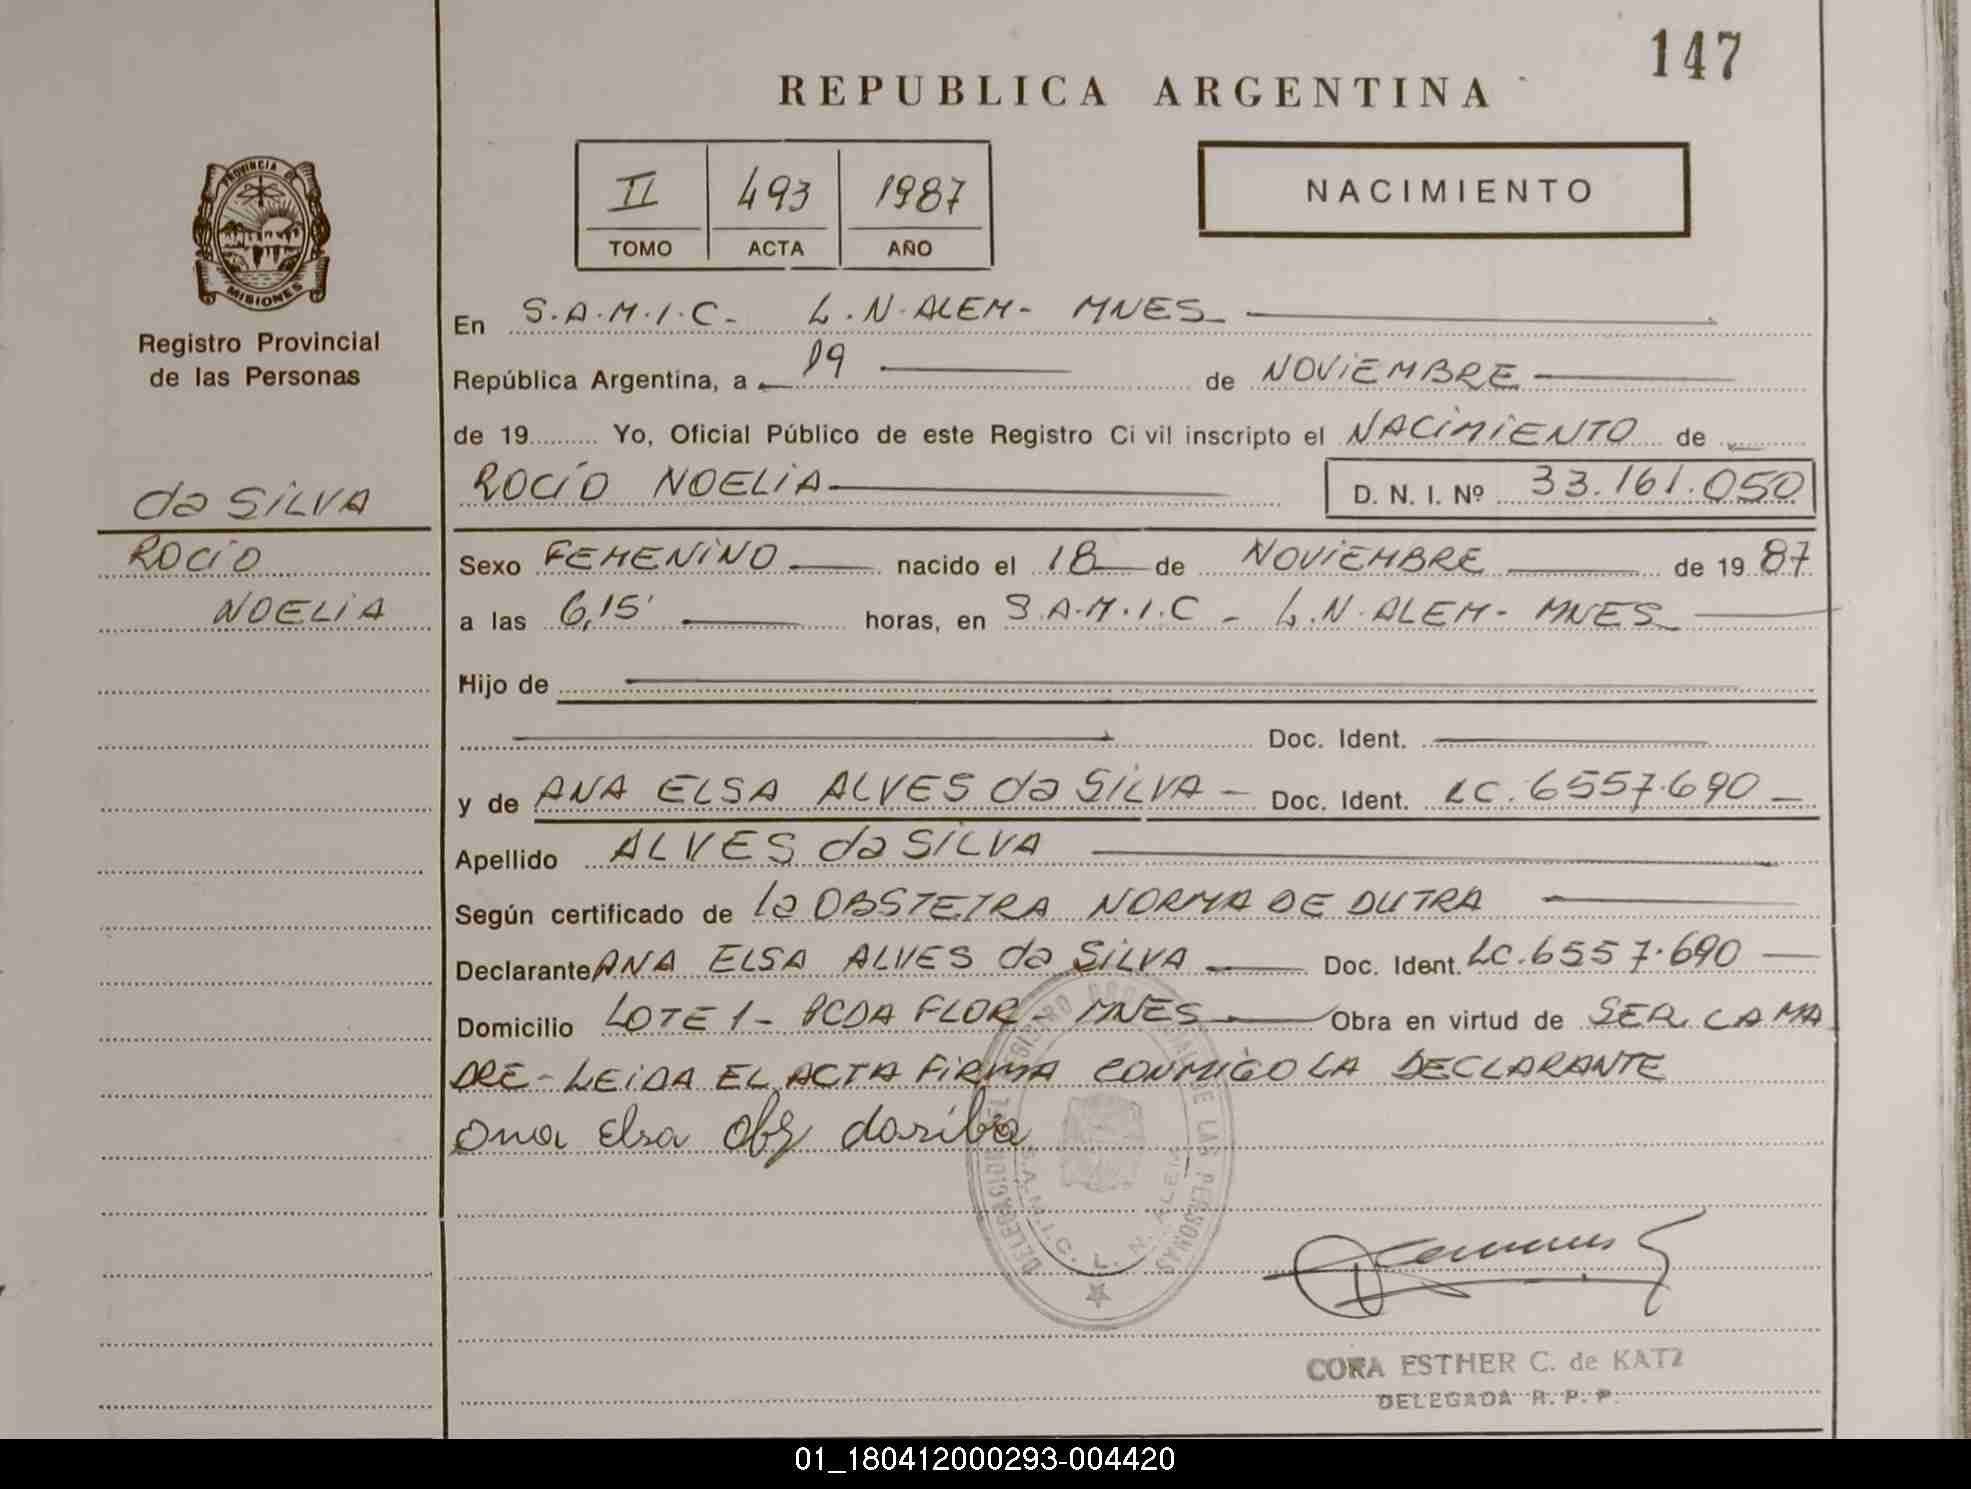 147
REPUBLICA ARGENTINA
II 493 1987
TOMO ACTA AÑO
NACIMIENTO
PROVINCIA DE
MISIONES
Registro Provincial
de las Personas
da SILVA
ROCÍO
NOELIA
En S.A.M.I.C- L.N.ALEM- MNES
República Argentina, a 19 de NOVIEMBRE
de 19 Yo, Oficial Público de este Registro Civil inscripto el NACIMIENTO de
ROCÍO NOELIA D. N. I. Nº 33.161.050
Sexo FEMENINO nacido el 18 de NOVIEMBRE de 19 87
a las 6,15' horas, en S.A.M.I.C - L.N.ALEM- MNES
Hijo de
Doc. Ident.
y de ANA ELSA ALVES da SILVA - Doc. Ident. LC.6557.690
Apellido ALVES da SILVA
Según certificado de la OBSTETRA NORMA DE DUTRA
Declarante ANA ELSA ALVES da SILVA Doc. Ident. LC.6557.690
Domicilio LOTE 1- PCDA FLOR- MNES Obra en virtud de SER LA MA
DRE-LEIDA EL ACTA FIRMA CONMIGO LA DECLARANTE
Ana Elsa dasilba
DELEGACION DEL REGISTRO PROVINCIAL DE LAS PERSONAS
S.A.M.I.C. L. N. ALEM
CORA ESTHER C. de KATZ
DELEGADA R. P. P.
01_180412000293-004420